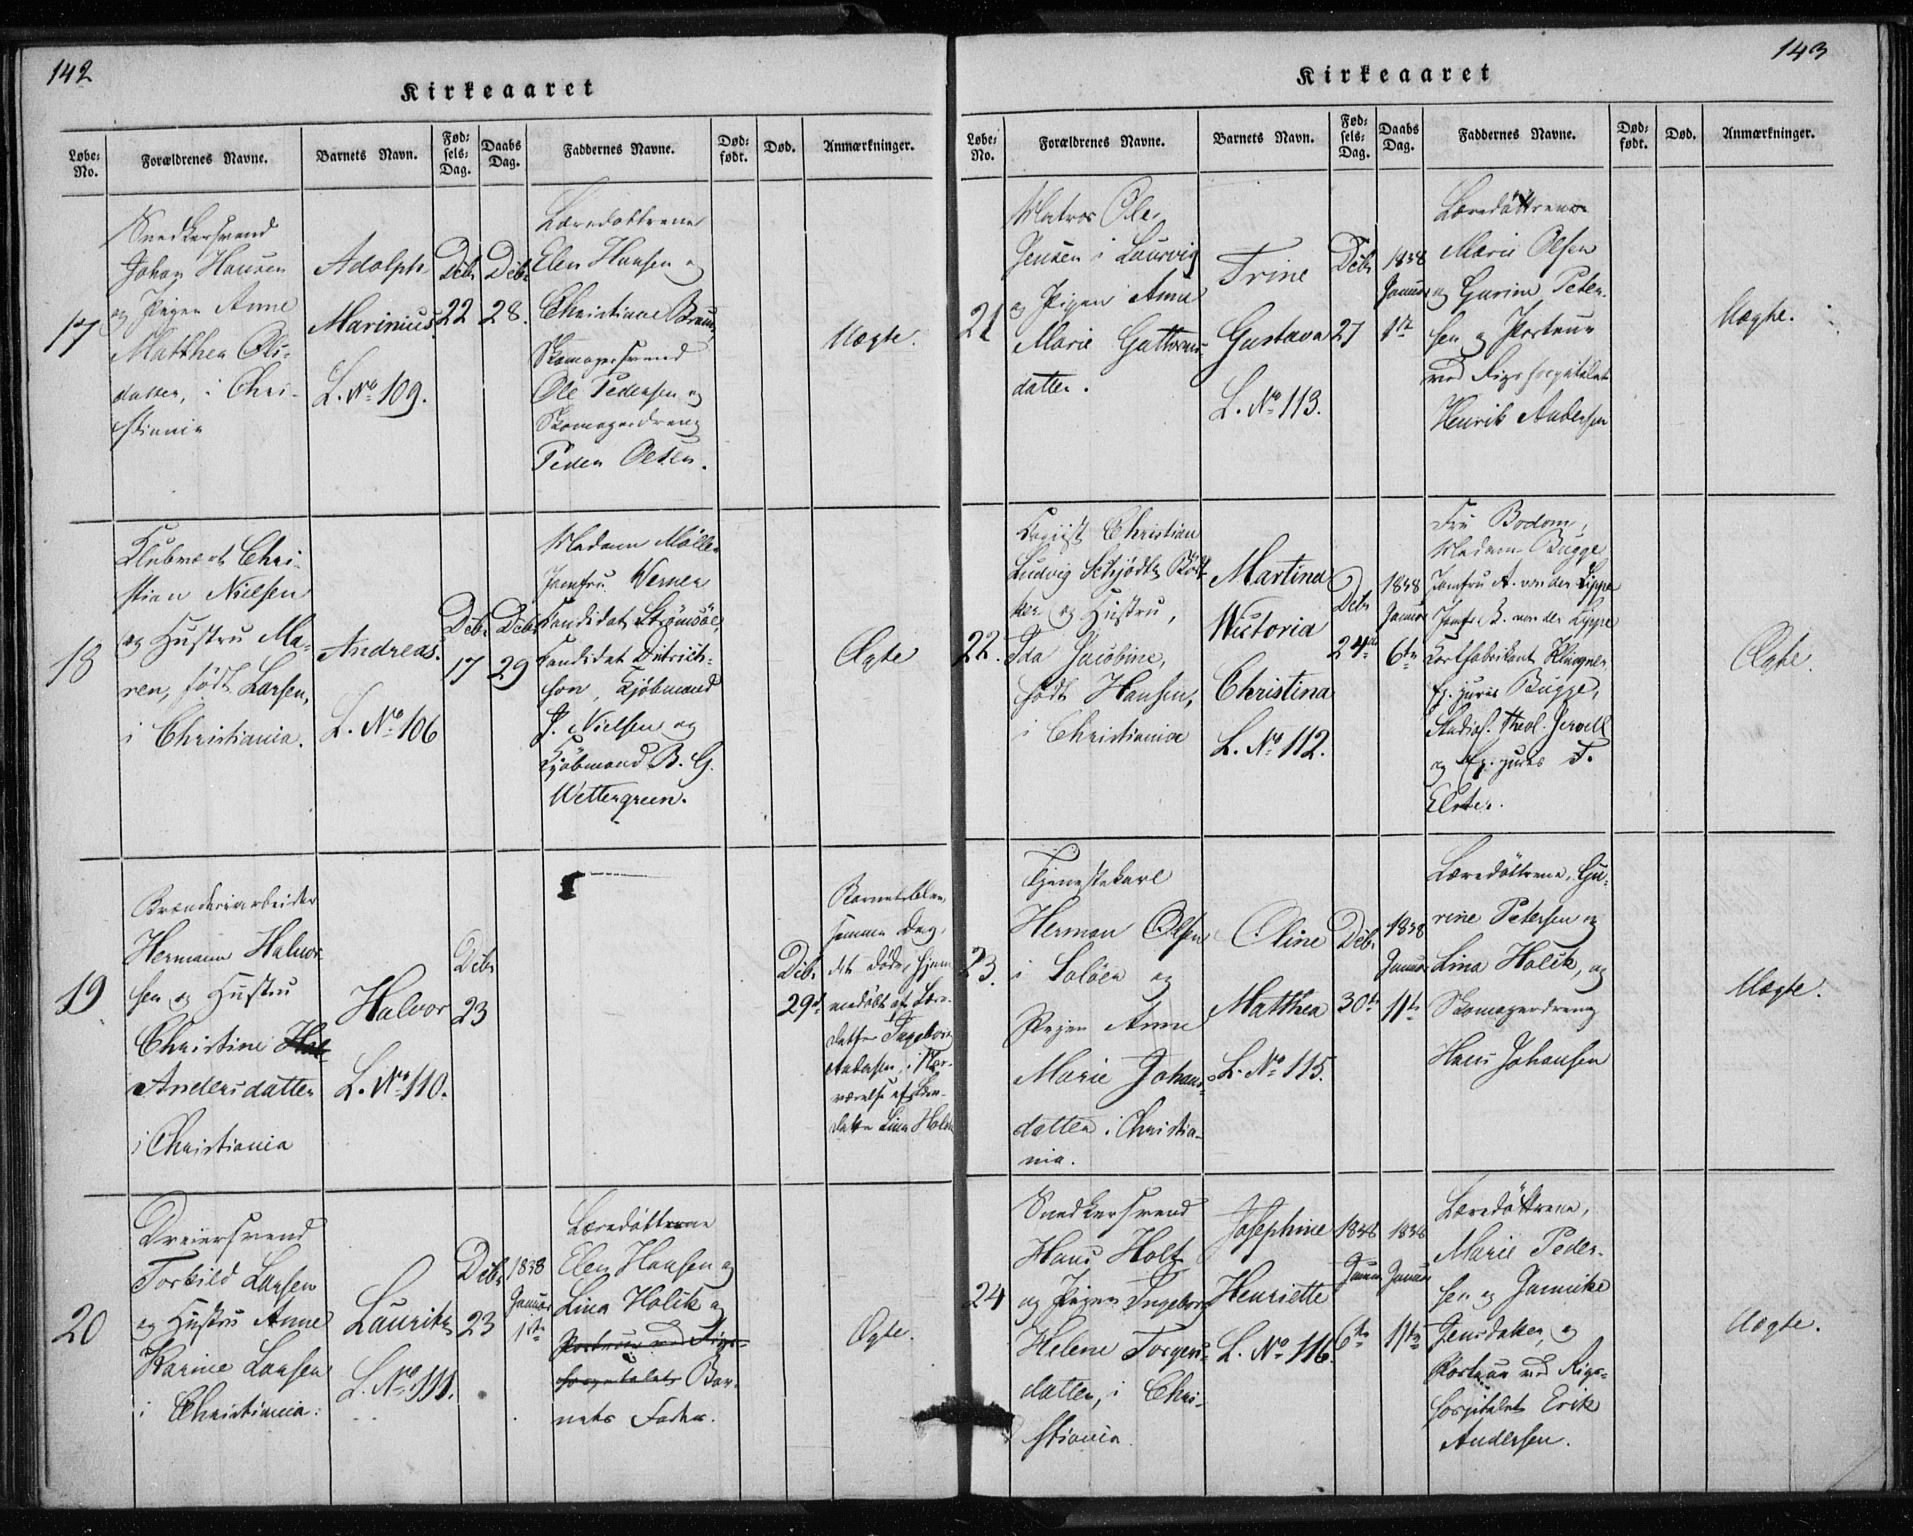 142
Kirkeaaret
Løbe-No. Forældrenes Navne. Barnets Navn. Fødsels-Dag. Daabs Dag. Faddernes Navne. Dødfødt. Død. Anmærkninger.
17
Snedkersvend
Johan Hansen
og Pigen Anne
Matthea Ols-
datter, i Chri-
stiania
Adolph
Marinius
L. No 109.
Debr 22
Debr 28.
Læredøttrene
Elen Hansen og
Christiane
Skomagersvend
Ole Pedersen og
Skomagerdreng
Peder Olsen.
Uægte.
18
Klubvært Chri-
stian Nielsen
og Hustru Ma-
ren, født Larsen,
i Christiania.
Andreas.
L. No 106
Debr 17
Debr 29
Madam Møller
Jomfru Werner
Kandidat Strømsøe,
Kandidat Ditrich-
son, Kjøbmand
J. Nielsen og
Kjøbmand B. G.
Wettergreen.
Ægte
19
Brænderiarbeider
Hermann Halvor-
sen og Hustru
Christine
Andersdatter
i Christiania
Halvor
L. No 110.
Debr 23
Debr 29d
Barnet blev,
samme Dag,
det døde, hjem-
medøbt af Lære-
datter Ingeborg
Andersen, i Nær-
værelse af Lære-
datter Lina Holck
20
Dreiersvend
Torkild Larsen
og Hustru Anne
Karine Larsen
i Christiania:
Lauritz
L. No 111.
Debr 23
1838
Januar
1ste
Læredøttrene
Elen Hansen og
Lina Holck og
Portneren ved Rigs-
hospitalet Bar-
nets Fader.
Ægte.
143
Kirkeaaret
Løbe-No. Forældrenes Navne. Barnets Navn. Fødsels-Dag. Daabs Dag. Faddernes Navne. Dødfødt. Død. Anmærkninger.
21
Matros Ole
Jensen i Laurvig
og Pigen Anne
Marie Guttorms-
datter.
Trine
Gustava
L. No 113.
Debr 27
1838
Januar
1ste
Læredøttrene
Marie Olsen
og Gurine Peter-
sen og Portner
ved Rigshospitalet
Henrik Andersen
Uægte.
22.
Copiist Christian
Ludvig Schjødtz
og Hustru,
Ida Jacobine,
født Hansen,
i Christiania
Martina
Victoria
Christina
L. No 112.
Debr
24de
1838
Januar
6te
Fru Bodom,
Madam Bugge
Jomfru A. von der Lippe
Jomfru B. von der Lippe
Kortfabrikant Klingner
Ex. juris Bugge,
Studios. theol. Jervell
og Ex. juris F.
Elster.
Ægte.
23.
Tjenestekarl
Herman Olsen
i Soløer og
Pigen Anne
Marie Johans-
datter i Christia-
nia.
Oline
Matthea
L. No 115.
Debr
30te
1838
Januar
11te
Læredøttrene, Gu-
rine Petersen og
Lina Holck, og
Skomagerdreng
Hans Johansen
Uægte.
24
Snedkersvend
Hans Holt
og Pigen Ingeborg
Helene Torgers-
datter, i Chri-
stiania
Josephine
Henriette
L. No 116.
1838
Januar
6te
1838
Januar
11te
Læredøttrene,
Marie Peder-
sen og Jannike
Jensdatter, og
Portner ved Rigs-
hospitalet Erik
Andersen.
Uægte.